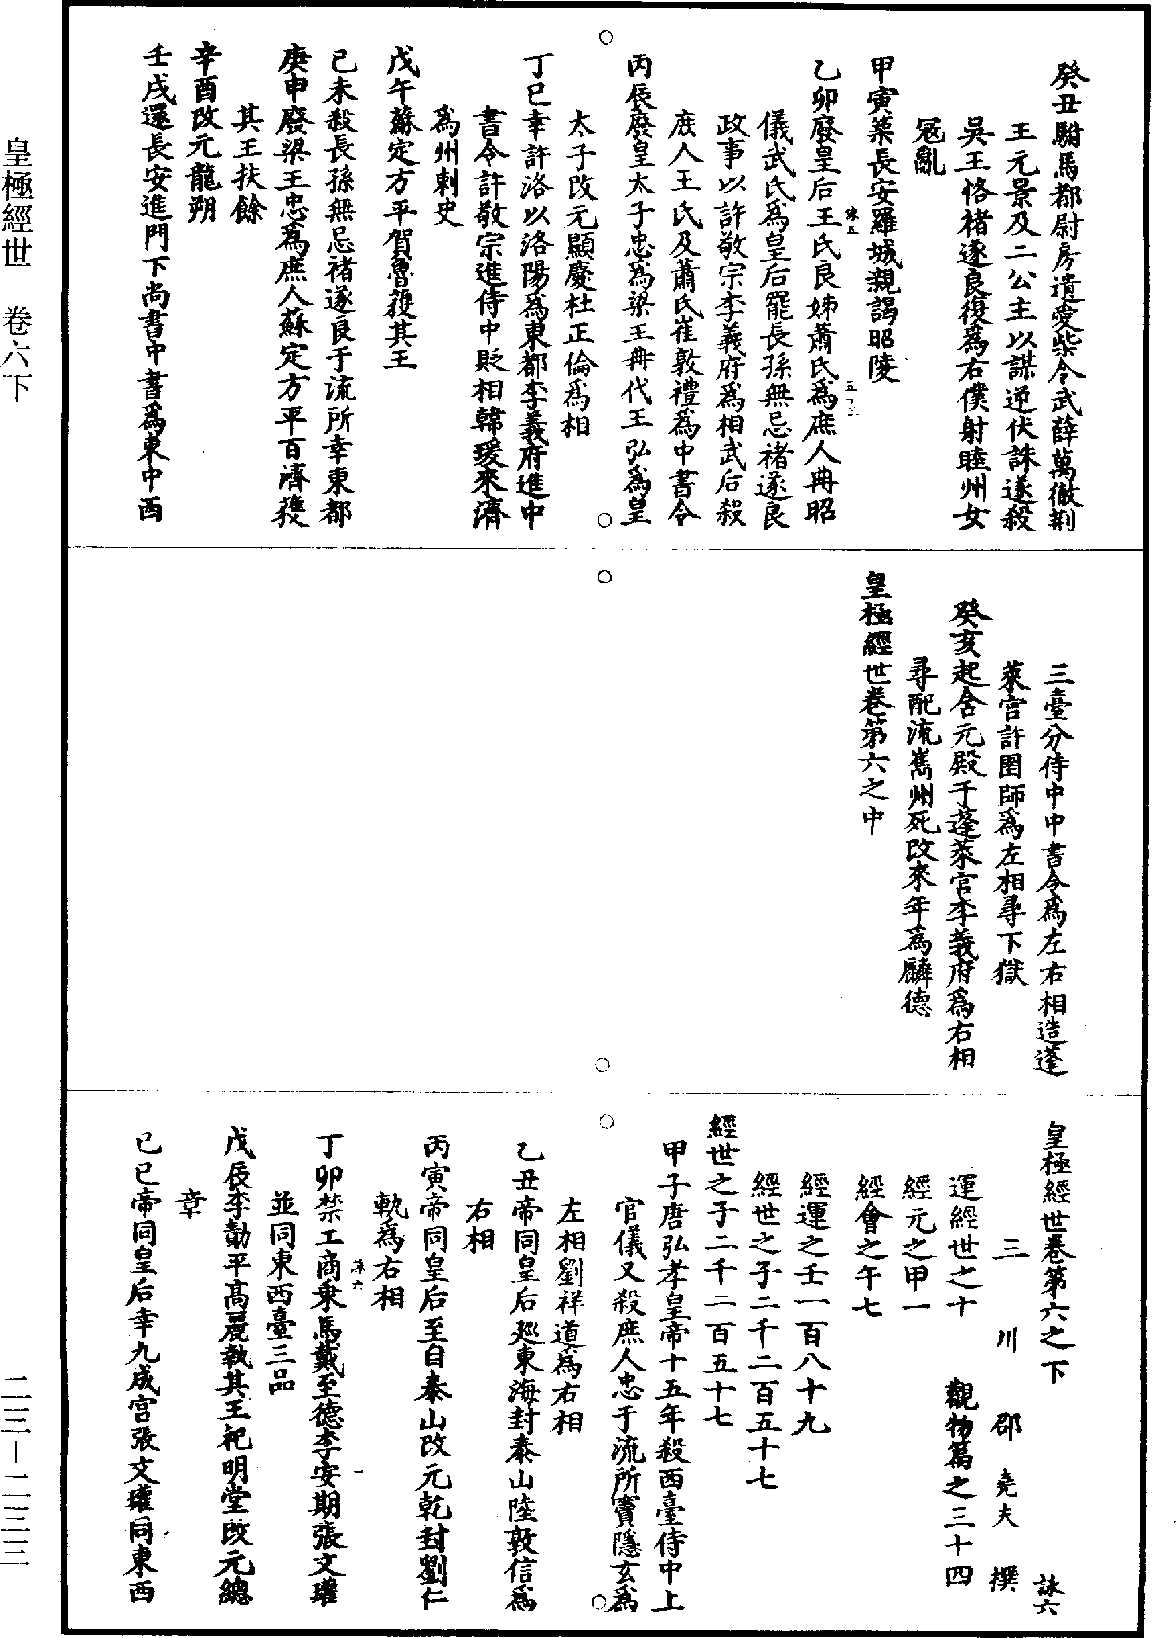 皇極經世　卷六下
癸丑駙馬都尉房遺愛柴令武薛萬徹荆
王元景及二公主以謀逆伏誅遂殺
吳王恪褚遂良復為右僕射睦州女
寇亂
甲寅築長安羅城親謁昭陵
乙卯廢皇后王氏良娣蕭氏為庶人冊昭
儀武氏為皇后罷長孫無忌褚遂良
政事以許敬宗李義府為相武后殺
庶人王氏及蕭氏崔敦禮為中書令
丙辰廢皇太子忠為梁王冊代王弘為皇
太子改元顯慶杜正倫為相
丁巳幸許洛以洛陽為東都李義府進中
書令許敬宗進侍中貶相韓瑗來濟
為州刺史
戊午蘇定方平賀魯獲其王
己未殺長孫無忌褚遂良于流所幸東都
庚申廢梁王忠為庶人蘇定方平百濟獲
其王扶餘
辛酉改元龍朔
壬戌還長安進門下尚書中書為東中西
三臺分侍中中書令為左右相造蓬
萊宮許圉師為左相尋下獄
癸亥起含元殿于蓬萊宮李義府為右相
尋配流嶲州死改來年為麟德
皇極經世卷第六之中
皇極經世卷第六之下
詠六
三川邵堯夫撰
運經世之十　觀物篇之三十四
經元之甲一
經會之午七
經運之壬一百八十九
經世之子二千二百五十七
經世之子二千二百五十七
甲子唐弘孝皇帝十五年殺西臺侍中上
官儀又殺庶人忠于流所竇隱玄為
左相劉祥道為右相
乙丑帝同皇后廵東海封泰山陸敦信為
右相
丙寅帝同皇后至自泰山改元乾封劉仁
軌為右相
丁卯禁工商乘馬戴至德李安期張文瓘
並同東西臺三品
戊辰李勣平高麗執其王祀明堂改元總
章
己巳帝同皇后幸九成宮張文瓘同東西
二三—二三三